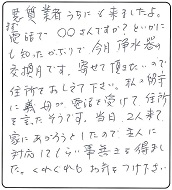 悪質業者うちにも来ましたよ。
電話で〇〇さんですか？といかに
も知ったかぶりで今月浄水器の
交換月です。寄せて頂きたいので
住所をおしえて下さい。私の留守
に義母が電話を受けて住所
を言ったそうです。当日、2人来て
家にあがろうとしたので主人に
対応してもらい事無きを得まし
た。くれぐれもお気をつけ下さい